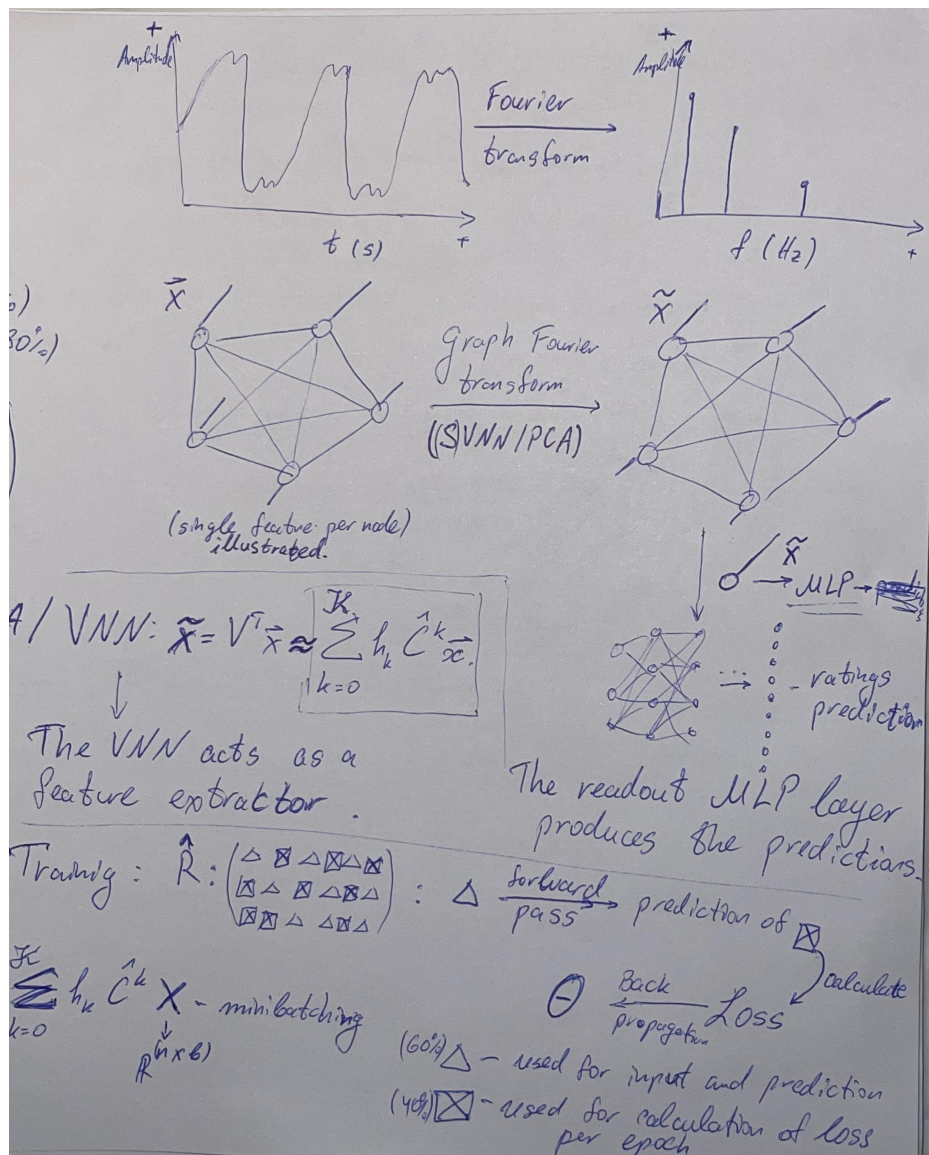 +
Amplitude
Fourier
transform
t (s)
+
+
Amplitude
f (Hz)
+
x⃗
Graph Fourier
transform
((S)VNN/PCA)
x̃
(single feature per node)
illustrated.
%)
A/VNN: x̃ = Vᵀx⃗ ≈ K Σ k=0 hₖ Ĉᵏ x⃗.
The VNN acts as a
feature extrattor.
x̃
→ MLP →
... → - ratings
prediction
The readout MLP layer
produces the predictions.
Trainig: R̂: (△ ⊠ △ ⊠ △ ⊠
⊠ △ ⊠ △ ⊠ △
⊠ ⊠ △ △ ⊠ △) : △ forward pass → prediction of ⊠
calculate
Loss
Back
propagation
Θ
K Σ k=0 hₖ Ĉᵏ X - minibatching
ℝ^(n×b)
(60%) △ - used for input and prediction
(40%) ⊠ - used for calculation of loss
per epoch